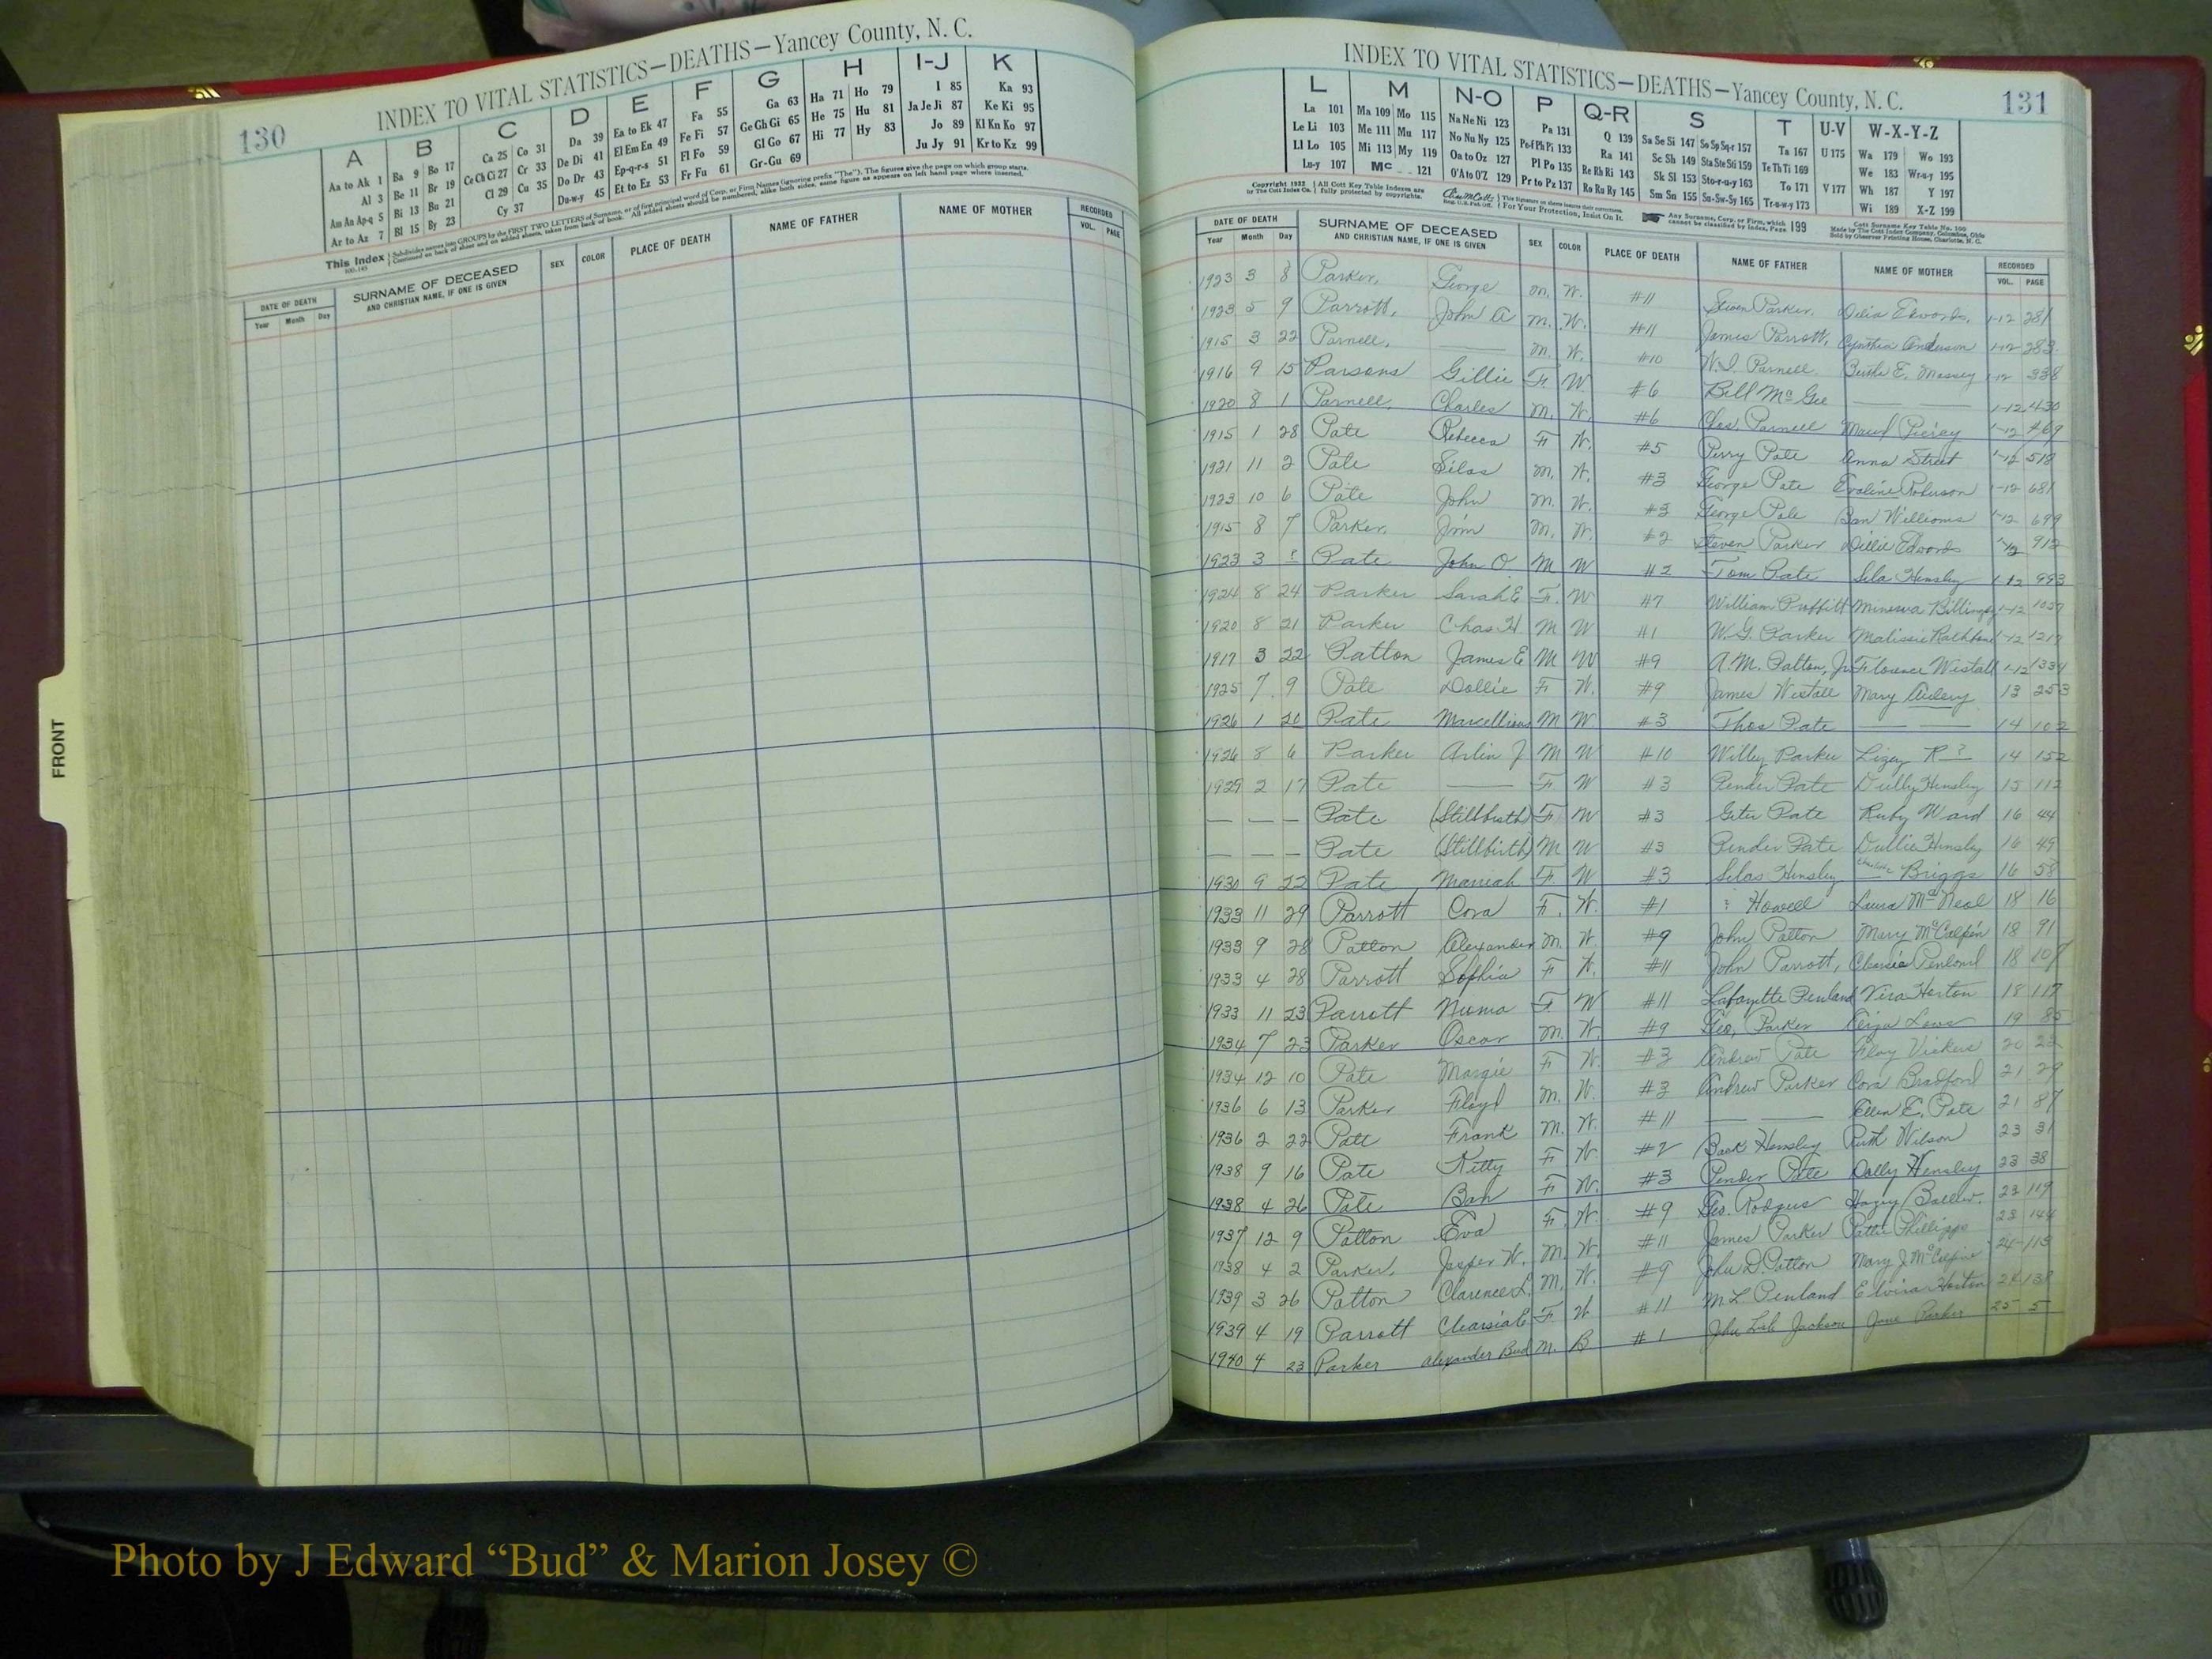 130
INDEX TO VITAL STATISTICS—DEATHS—Yancey County, N. C.
A B C D E F G H I-J K
Aa to Ak 1 Ba 9 Bo 17 Ca 25 Co 31 Da 39 Ea to Ek 47 Fa 55 Ga 63 Ha 71 Ho 79 I 85 Ka 93
Al 3 Be 11 Br 19 Ce Ch Ci 27 Cr 33 De Di 41 El Em En 49 Fe Fi 57 Ge Gh Gi 65 He 75 Hu 81 Ja Je Ji 87 Ke Ki 95
Am An Ap-q 5 Bi 13 Bu 21 Cl 29 Cu 35 Do Dr 43 Ep-q-r-s 51 Fl Fo 59 Gl Go 67 Hi 77 Hy 83 Jo 89 Kl Kn Ko 97
Ar to Az 7 Bl 15 By 23 Cy 37 Du-w-y 45 Et to Ez 53 Fr Fu 61 Gr-Gu 69 Ju Jy 91 Kr to Kz 99
This Index
DATE OF DEATH SURNAME OF DECEASED AND CHRISTIAN NAME, IF ONE IS GIVEN SEX COLOR PLACE OF DEATH NAME OF FATHER NAME OF MOTHER RECORDED
Year Month Day VOL. PAGE
FRONT
INDEX TO VITAL STATISTICS—DEATHS—Yancey County, N. C.
131
L M N-O P Q-R S T U-V W-X-Y-Z
La 101 Ma 109 Mo 115 Na Ne Ni 123 Pa 131 Q 139 Sa Se Si 147 So Sp Sq-r 157 Ta 167 U 175 Wa 179 Wo 193
Le Li 103 Me 111 Mu 117 No Nu Ny 125 Pe-f Ph Pi 133 Ra 141 Sc Sh 149 Sta Ste Sti 159 Te Th Ti 169 We 183 Wr-u-y 195
Ll Lo 105 Mi 113 My 119 Oa to Oz 127 Pl Po 135 Re Rh Ri 143 Sk Sl 153 Sto-r-u-y 163 To 171 V 177 Wh 187 Y 197
Lu-y 107 Mc 121 O'A to O'Z 129 Pr to Pz 137 Ro Ru Ry 145 Sm Sn 155 Su-Sw-Sy 165 Tr-u-w-y 173 Wi 189 X-Z 199
DATE OF DEATH SURNAME OF DECEASED AND CHRISTIAN NAME, IF ONE IS GIVEN SEX COLOR PLACE OF DEATH NAME OF FATHER NAME OF MOTHER RECORDED
Year Month Day VOL. PAGE
1923 3 8 Parker, George M. W. #11 Steven Parker, Delia Edwards, 1-12 281
1923 5 9 Parrott, John A M. W. #11 James Parrott, Cynthia Anderson 1-12 283
1915 3 22 Parnell, M. W. #10 W.I. Parnell Bertha E. Massey 1-12 338
1916 9 15 Parsons Gillie F. W #6 Bill McGee 1-12 430
1920 8 1 Parnell, Charles M. W. #6 Chas. Parnell Maud 1-12 469
1915 1 28 Pate Rebecca F W. #5 Perry Pate Anna Street 1-12 518
1921 11 2 Pate Silas M. W. #3 George Pate Evaline Roberson 1-12 681
1923 10 6 Pate John M. W. #3 George Pate Ban Williams 1-12 699
1915 8 7 Parker, Jim M. W. #2 Steven Parker Dillie Edwards 1-12 912
1923 3 ? Pate John O M W #2 Tom Pate Sila Hensley 1-12 993
1924 8 24 Parker Sarah E F. W #7 William Proffitt Minerva 1-12 1057
1920 8 21 Parker Chas H M W #1 W.G. Parker Malissie Rathbone 1-12 1217
1917 3 22 Patton James E M W #9 A.M. Patton, Jr. Florence Westall 1-12 1334
1925 7 9 Pate Dollie F W. #9 James Westall Mary 13 253
1926 1 20 Pate Marcellious M W #3 Thos Pate 14 102
1926 8 6 Parker Arlin J M W #10 Willey Parker Lizey R ? 14 152
1929 2 17 Pate F W #3 Pender Pate Dully Hensley 15 112
Pate (Stillbirth) F W #3 Giter Pate Ruby Ward 16 44
Pate (Stillbirth) M W #3 Pender Pate Dullie Hensley 16 49
1930 9 22 Pate Maniah F W #3 Silas Hensley Briggs 16 58
1933 11 29 Parrott Cora F. W. #1 ? Howell Laura McNeal 18 16
1933 9 28 Patton Alexander M. W. #9 John Patton Mary McCalpin 18 91
1933 4 28 Parrott Sophia F W. #11 John Parrott, Clearsie Penland 18
1933 11 23 Parrott Nioma F W #11 Lafayette Penland Vira Horton 18 117
1934 7 23 Parker Oscar M. W. #9 Geo, Parker 19 85
1934 12 10 Pate Margie F W. #3 Andrew Pate Floy Vickers 20 22
1936 6 13 Parker Floyd M. W. #3 Andrew Parker Cora Bradford 21 29
1936 2 22 Pate Frank M. W. #11 Ellen E. Pate 21 87
1938 9 16 Pate Kitty F W. #2 Hensley Ruth Wilson 23 31
1938 4 26 Pate Bah F W. #3 Pender Pate Dolly Hensley 23 38
1937 12 9 Patton Eva F. W. #9 Geo. Rodgers Ballew. 23 119
1938 4 2 Parker, Jasper W. M. W. #11 James Parker Pattie Phillips 23 144
1939 3 26 Patton Clarence L. M. W. #9 John D. Patton Mary J. McCalpine 24 113
1939 4 19 Parrott Clearsia E. F W #11 M L Penland Elvira Horton 24
1940 4 23 Parker Alexander Bud M. B #1 John Jackson Jane Parker 25 5
Photo by J Edward “Bud” & Marion Josey ©